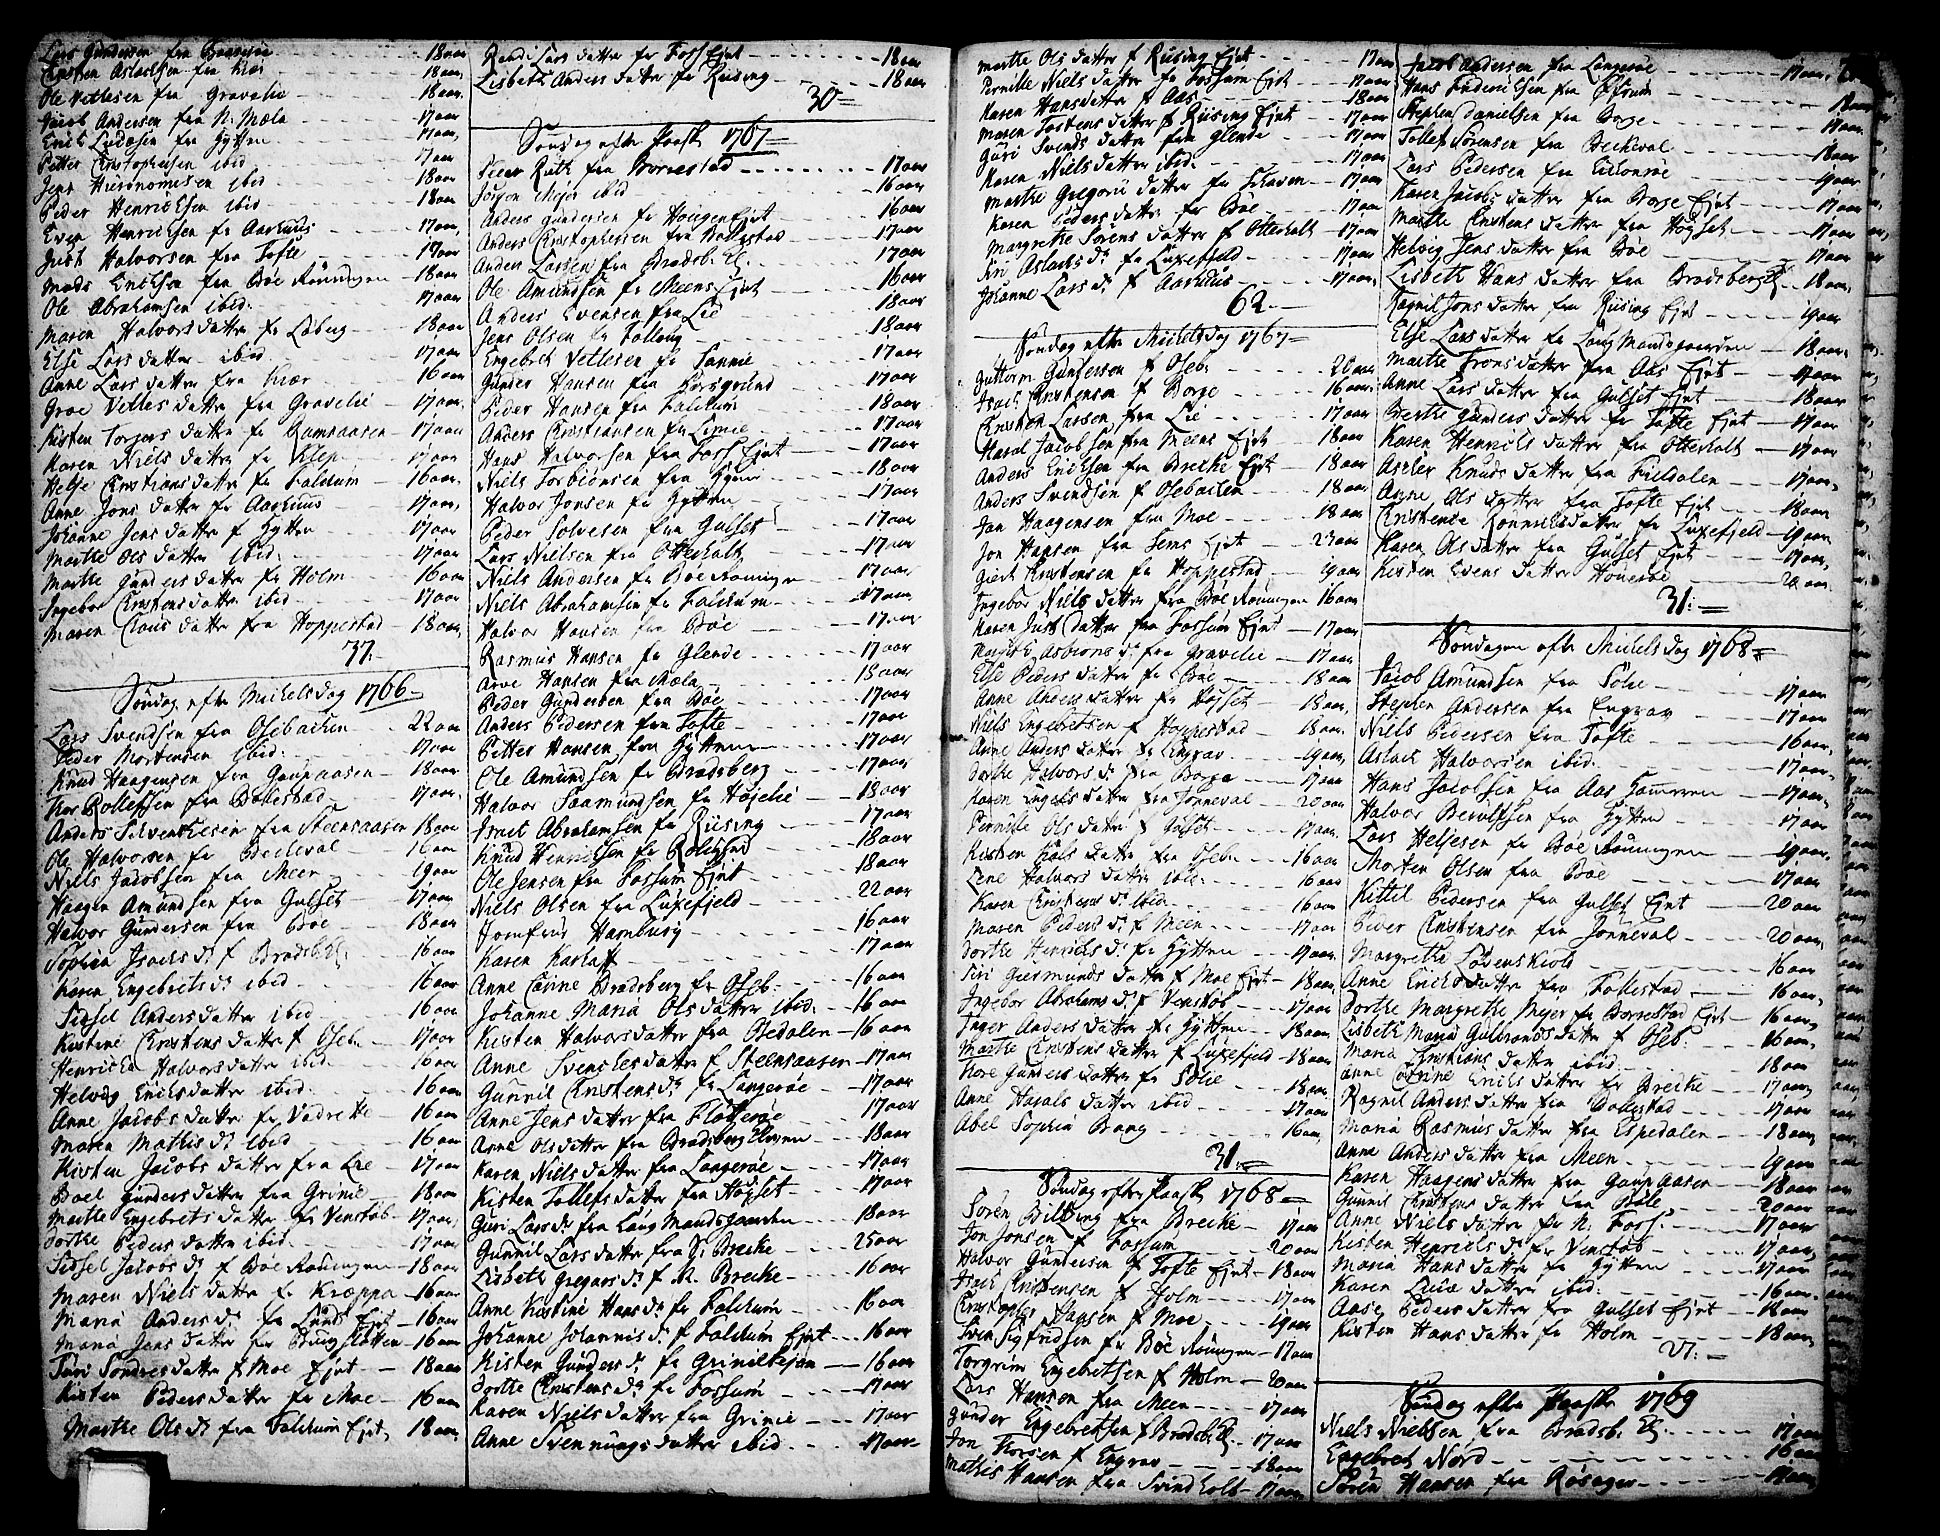 Lars Gundersen fra Braarøe 18 aar
Christen Aslachsen fra Kiær 18 aar
Ole Vetlesen fra Gravelie 18 aar
Jacob Andersen fra N. Mæla 17 aar
Erich Ludvsen fra Hytten 17 aar
Petter Christophersen ibid 17 aar
Jens Hieronomisen ibid 18 aar
Peder Henrichsen ibid 18 aar
Even Henrichsen fr Aarhuus 17 aar
Just Halvorsen fra Tofte 17 aar
Mads Erichsen fra Bøe Rønningen 18 aar
Ole Abrahamsen ibid. 17 aar
Maren Halvorsdatter fr Liberg 18 aar
Else Larsdatter ibid 17 aar
Anne Larsdatter fra Kiær 16 aar
Groe Vetlesdatter fra Gravelie 17 aar
Kisten Torgers datter fr Ramsaasen 17 aar
Karen Nielsdatter fr Klep 17 aar
Helje Christiansdatter fr Falchum 16 aar
Anne Jonsdatter fr Aarhuus 17 aar
Johanne Jensdatter f Hytten 17 aar
Marthe Olsdatter ibid. 17 aar
Marthe Gundersdatter fr Holm 16 aar
Ingebor Christensdatter ibid 17 aar
Maren Clausdatter fra Hoppestad 18 aar
37.
Søndag efter Michelsdag 1766
Lars Svendsen fra Osebachen 22 aar
Peder Mortensen ibid. 17 aar
Knud Haagensen fra Gaupaasen 18 aar
Thor Rollefsen fra Bollestad 17 aar
Anders Silvenchesen fra Steensaasen 18 aar
Ole Halvorsen fr Becheval 16 aar
Niels Jacobsen fra Meen 19 aar
Haagen Amundsen fra Gulset 17 aar
Halvor Gundersen fra Bøe 18 aar
Sophia Isachsd. f Bradsb. El. 16 aar
Karen Engebretsd. ibid 16 aar
Sidsel Andersdatter ibid 16 aar
Kistine Christensdatter f Oseb. 17 aar
Henricha Halvorsdatter ibid. 16 aar
Helvig Erichsdatter ibid. 16 aar
Anne Jacobsdatter fr Vadrette 16 aar
Maren Mathisd. ibid 16 aar
Kisten Jacobsdatter fra Lie 17 aar
Boel Gundersdatter fra Grinie 18 aar
Marthe Engebretsdatter fr Venstøb 17 aar
Dorthe Pedersdatter ibid. 17 aar
Sidsel Jacobsd. f Bøe Rønningen 18 aar
Maren Nielsdatter fr Kræppa 16 aar
Maria Andersd. fr Lund Ejet 16 aar
Maria Jensdatter fr Brugsletten 16 aar
Turi Sondresdatter f Moe Ejet 18 aar
Kisten Pedersdatter fr Moe 16 aar
Marthe Olsd. fra Falchum Ejet 18 aar
Randi Larsdatter fr Foss Ejet 18 aar
Lisbeth Andersdatter fr Riising 18 aar
30
Søndag efter Paaske 1767
Peder Ruth fra Borrestad 17 aar
Jørgen Mejer ibid 16 aar
Anders Gundersen fr Haugen Ejet 16 aar
Anders Christophersen fra Bollestad 17 aar
Anders Larsen fra Bradsb. El. 17 aar
Ole Amundsen fr Meens Ejet 16 aar
Anders Evensen fra Lie 18 aar
Jens Olsen fr Follaug 18 aar
Engebret Vetlesen fr Sannie 17 aar
Gunder Hansen fra Porsgrund 17 aar
Peder Hansen fra Falchum 18 aar
Anders Christiansen fr Lysnie 17 aar
Hans Halvorsen fra Foss Ejet 17 aar
Niels Torbiønsen fra Hynie 18 aar
Halvor Jonsen fr Hytten 17 aar
Peder Solvesen fra Gulset 17 aar
Lars Nielsen fra Otterholt 17 aar
Niels Andersen fr Bøe Rønningen 17 aar
Niels Abrahamsen fr Falchum 17 aar
Halvor Hansen fra Bøe 17 aar
Rasmus Hansen fr Glende 17 aar
Arve Hansen fra Mæla 18 aar
Peder Gundersen fra Bøe 17 aar
Anders Pedersen fra Tofte 17 aar
Petter Hansen fra Hytten 17 aar
Ole Amundsen fr Bradsberg 17 aar
Halvor Saamundsen fr Højelie 18 aar
Israel Abrahamsen fr Riising 17 aar
Knud Henrichsen fr Rolighed 18 aar
Ole Jensen fra Fossum Ejet 18 aar
Niels Olsen fra Luxefjeld 22 aar
Jomfrue Hamburg 16 aar
Karen Karlaff 17 aar
Anne Carine Bradsberg fr Oseb. 16 aar
Johanne Maria Olsdatter ibid. 16 aar
Kisten Halvorsdatter fra Osedalen 16 aar
Anne Svenchesdatter f Steensaasen 17 aar
Gunnil Christensd. fr Langerøe 17 aar
Anne Jensdatter fra Flotterøe 17 aar
Anne Olsdatter fra Bradsberg Elven 18 aar
Karen Nielsdatter fra Langerøe 17 aar
Kisten Tollefsdatter fra Højset 17 aar
Guri Larsd. fra Laugmandsgaarden 18 aar
Gunnil Larsdatter fra S. Brecke 25 aar
Lisbeth Gregarsd. f N. Brecke 16 aar
Anne Kistine Hansd. fr Falchum 16 aar
Johanne Johannisd. f Falchum Ejet 16 aar
Kisten Gundersd. fr Griniekjen 16 aar
Dorthe Christensd. fr Fossum 17 aar
Karen Nielsdatter fra Grinie 17 aar
Anne Svennungsdatter ibid 17 aar
Marthe Olsdatter f Riising Ejet 17 aar
Pernille Nielsdatter fr Fossum Ejet 17 aar
Karen Hansdatter f Aas 18 aar
Maren Tostensdatter f Riising Ejet 17 aar
Guri Svendsdatter fra Glende 17 aar
Karen Nielsdatter ibid. 17 aar
Marthe Gregorii datter fr Skaven 17 aar
Karen Pedersdatter fr Bøe 17 aar
Margrethe Sørensdatter f Otterholt 17 aar
Siri Aslachsd. fr Luxefjeld 17 aar
Johanne Larsd. f Aarhuus 17 aar
62.
Søndag efter Michelsdag 1767
Guttorm Gundersen f Oseb. 20 aar
Isach Christensen f Borge 16 aar
Christen Larsen fra Lie 17 aar
Harol Jacobsen fra Meens Ejet 18 aar
Anders Erichsen fra Brecke Ejet 18 aar
Anders Svendsen f Osebachen 18 aar
Jan Haagensen fra Moe 18 aar
Jon Hansen fra Sems Ejet 23 aar
Giert Christensen fr Hoppestad 19 aar
Ingebor Nielsdatter fra Bøe Rønningen 16 aar
Karen Justdatter fra Fossum Ejet 17 aar
Margith Asbiønsd. fra Gravelie 17 aar
Else Pedersdatter fr Bøe 18 aar
Anne Andersdatter fr Højset 18 aar
Niels Engebretsen f Hoppestad 18 aar
Anne Andersdatter fr Engrav 19 aar
Dorthe Halvorsd. fra Borge 17 aar
Karen Engelsdatter fra Jønneval 20 aar
Pernille Olsdatter f Gulset 17 aar
Kisten Nielsdatter fra Oseb. 16 aar
Lene Halvorsdatter ibid. 16 aar
Karen Christensd. ibid. 16 aar
Maren Pedersd. f Meen 17 aar
Dorthe Henrichsd. f Hytten 17 aar
Siri Giermunds datter f Moe Ejet 18 aar
Ingebor Abrahamsd. f Venstøb 17 aar
Inger Andersdatter fr Hytten 18 aar
Marthe Christensdatter f Luxefjeld 18 aar
Thore Gundersdatter fr Sølie 18 aar
Anne Haralsdatter ibid 17 aar
Abel Sophia Bang 16 aar
31.
Søndag efter Paaske 1768
Søren Bilbing fra Brecke 17 aar
Jon Jonsen f Fossum 20 aar
Halvor Gundersen f Tofte Ejet 18 aar
Isach Christensen f Holm 17 aar
Christopher Hansen f Moe 19 aar
Sven Sigfridsen fr Bøe Rønningen 17 aar
Torgrim Engebretsen f Holm 20 aar
Lars Hansen fra Meen 17 aar
Gunder Engebretsen f Bradsb. El. 17 aar
Jon Thorsen f Engrav 18 aar
Mathis Hansen fra Svindholt 17 aar
Jacob Andersen fra Langerøe 17 aar
Hans Friderichsen fra Østrum 18 aar
Stephen Danielsen fra Borge 17 aar
Tollef Sørensen fra Becheval 18 aar
Lars Pedersen fra Lillonrøe 19 aar
Karen Jacobsdatter fra Borge Ejet 17 aar
Marthe Christensdatter fra Højset 17 aar
Helvig Jensdatter fra Bøe 17 aar
Lisbeth Hansdatter fra Bradsberg El. 18 aar
Ragnil Jonsdatter fra Riising Ejet 19 aar
Else Larsdatter fr Laugmandsgaarden 18 aar
Marthe Tronsdatter fra Aas Ejet 17 aar
Anne Larsdatter fra Gulset Ejet 18 aar
Berthe Gundersdatter fr Tofte Ejet 17 aar
Karen Henrichsdatter fra Otterholt 17 aar
Aslør Knudsdatter fra Fieldalen 17 aar
Anne Olsdatter fra Tofte Ejet 18 aar
Christence Rønnichsdatter fr Luxefjeld 19 aar
Karen Olsdatter fra Gulset Ejet 17 aar
Kisten Evensdatter Houerøe 20 aar
31.
Søndagen efter Michelsdag 1768
Jacob Amundsen fra Sølie 17 aar
Stephen Andersen fra Engrav 17 aar
Niels Pedersen fra Tofte 16 aar
Aslach Halvorsen ibid. 17 aar
Hans Jacobsen fra Aas Sameyen 17 aar
Halvor Berulfsen fra Hytten 17 aar
Lars Heljesen fr Bøe Rønningen 19 aar
Morten Olsen fra Bøe 17 aar
Kittil Pedersen fra Gulset Ejet 20 aar
Peder Christensen fra Jønneval 20 aar
Margrethe Løvenskiold 16 aar
Anne Erichsdatter fra Follestad 16 aar
Dorthe Margrethe Mejer fr Borrestad Ejet 16 aar
Lisbeth Maria Gulbrandsdatter f Oseb. 16 aar
Maria Christiansdatter ibid. 18 aar
Anne Catrine Erichsdatter fr Brecke 17 aar
Ragnil Andersdatter fra Bollestad 17 aar
Maria Rasmusdatter fra Espedalen 18 aar
Anne Andersdatter fra Meen 19 aar
Karen Haagensdatter fra Gaupaasen 18 aar
Gunnil Christensdatter fra Bøle 20 aar
Anne Nielsdatter fr N. Foss. 17 aar
Kisten Henrichsd. fr Venstøb 17 aar
Maria Hansdatter fr Hytten 17 aar
Karen Lucædatter ibid. 16 aar
Aase Pedersdatter fra Gulset Ejet 18 aar
Kisten Hansdatter fr Holm 18 aar
27.
Søndag efter Paaske 1769
Niels Nielsen fra Bradsb. El. 17 aar
Engebret Nord 16 aar
Søren Hansen fra Rosager 17 aar